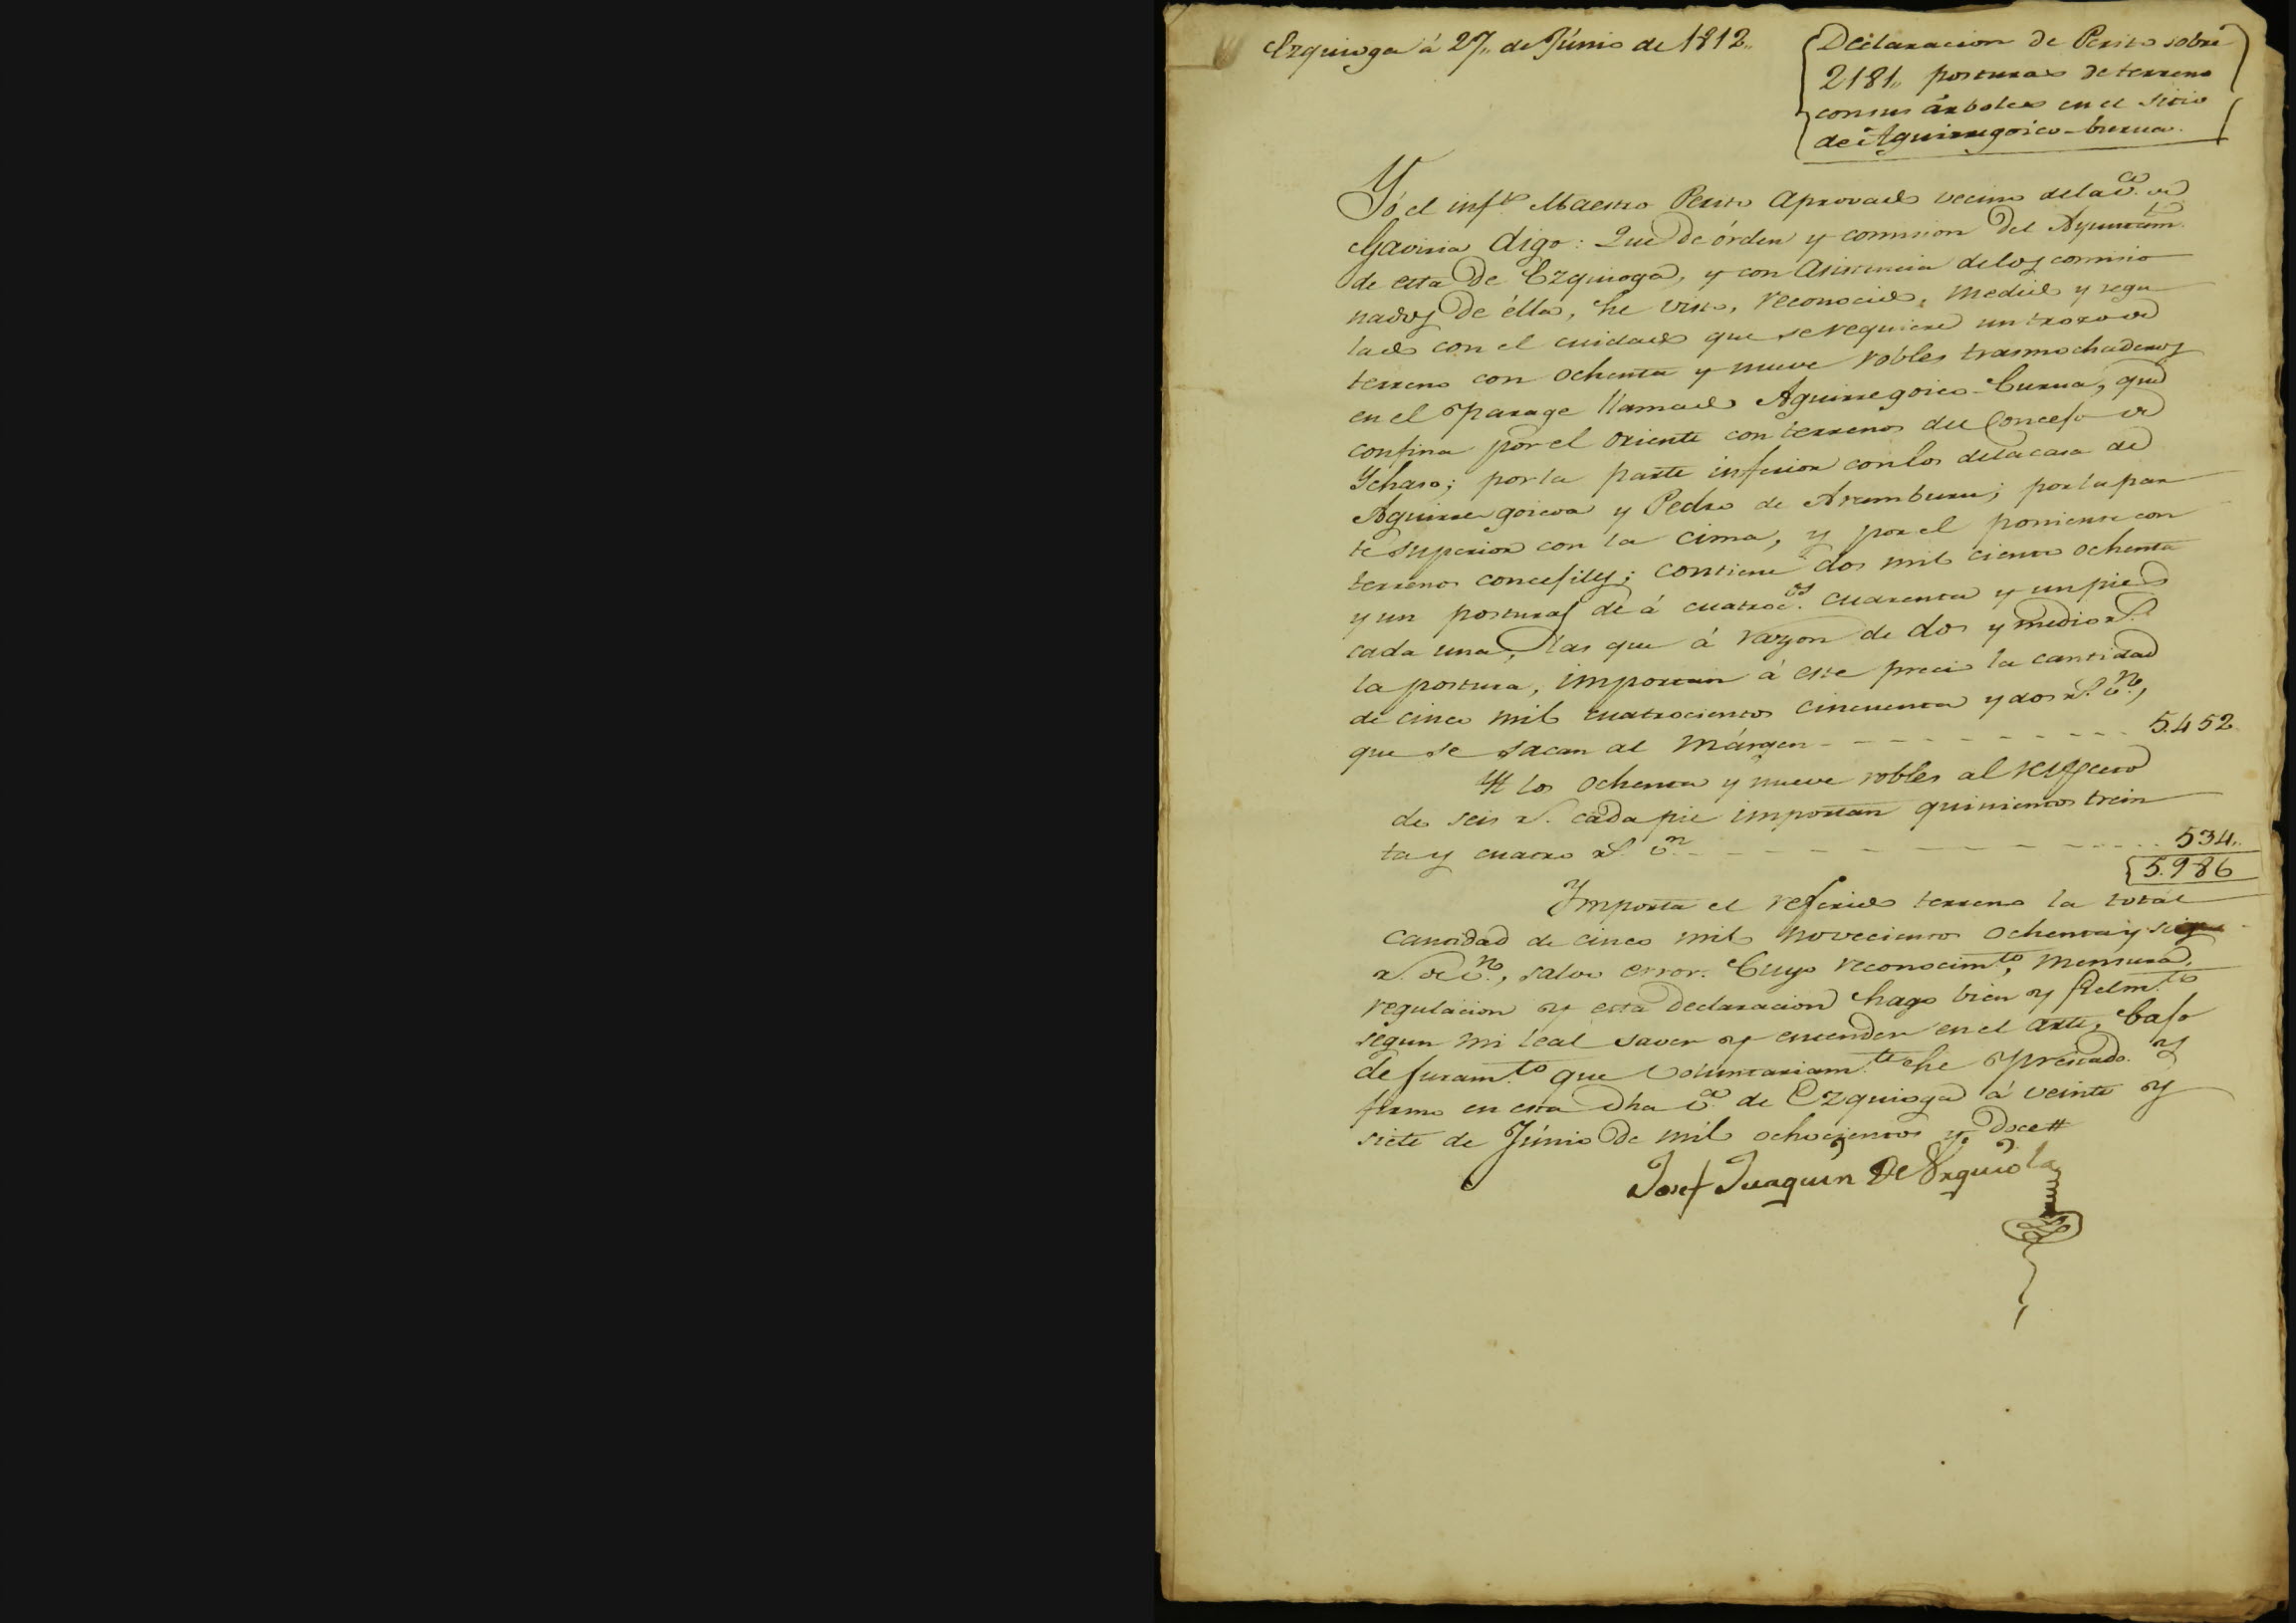 Ezquioga á 27,, de Júnio de 1812,,
Declaracion de Perito sobre
2181,, posturas de terreno
con sus árboles en el sitio
de Aguirregoico-burua.
Yó el inf.to Maestro Perito Aprovado vecino de la v.a de
Gaviria digo: Que de órden y comision del Ayuntam.to
de esta de Ezquioga, y con asistencia de los comisio
nados de élla, he visto, reconocido, medido y regu
lado con el cuidado que se requiere un trozo de
terreno con ochenta y nueve robles trasmochaderos
en el parage llamado Aguirregoico-burua, que
confina por el oriente con terrenos del Concejo de
Ychaso; por la parte inferior con los de la casa de
Aguirregoicoa y Pedro de Aramburu; por la par
te superior con la cima, y por el poniente con
terrenos concejiles; contiene dos mil ciento ochenta
y un posturas de á cuatroc.os cuarenta y un pies
cada una, las que á razon de dos y medio r.s
la postura, importan á este precio la cantidad
de cinco mil cuatrocientos cincuenta y dos r.s v.n,
que se sacan al márgen - - - - - - - - - - 5.452
Yt los ochenta y nueve robles al respecto
de seis r.s cada pie importan quinientos trein
ta y cuatro r.s v.n - - - - - - - - - - 534,,
5.986
Ymporta el referido terreno la total
cantidad de cinco mil novecientos ochenta y seis
r.s de v.n, salvo error. Cuyo reconocim.to, mensura,
regulacion y esta declaracion hago bien y fielm.te
segun mi leal saver y entender en el arte, bajo
de juram.to que voluntariam.te he prestado. Y
firmo en esta dha v.a de Ezquioga á veinte y
siete de Júnio de mil ochocientos y doce #
Josef Juaquin De Urquiola